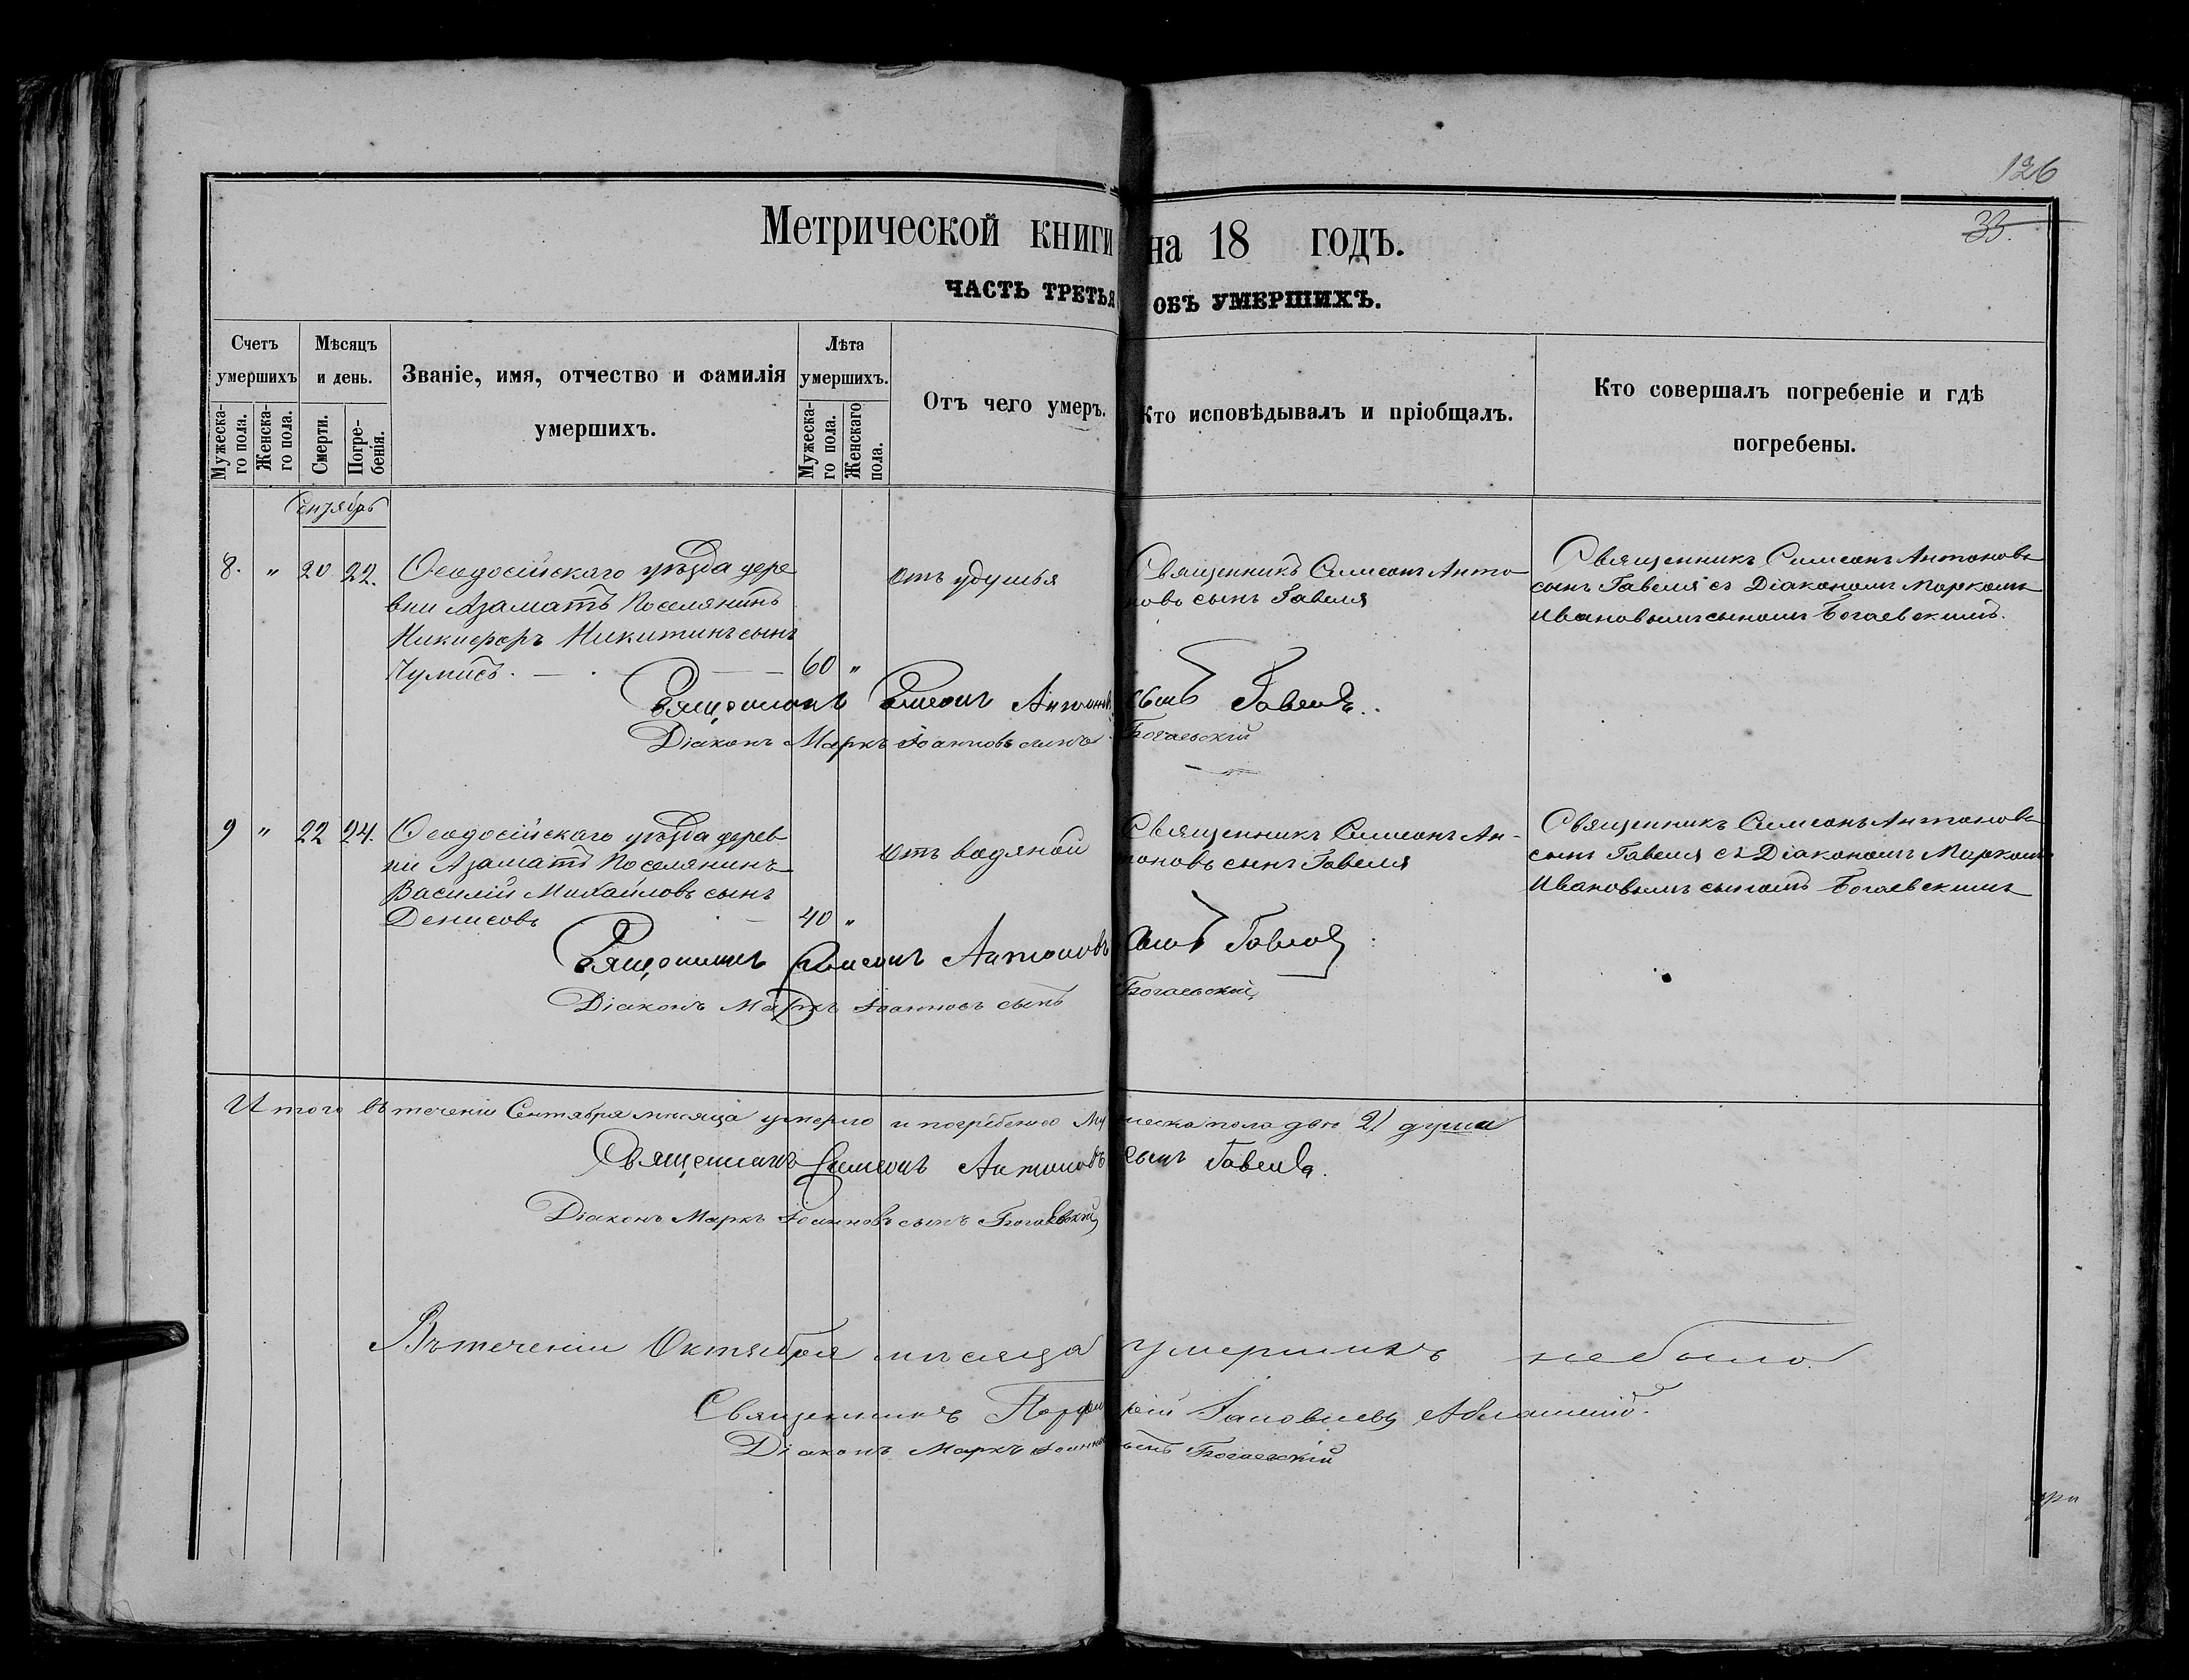 126
33.
Метрической книги на 18 годъ.
ЧАСТЬ ТРЕТЬЯ ОБЪ УМЕРШИХЪ.
Счетъ умершихъ
Мужеска-го пола.
Женска-го пола.
Мѣсяцъ и день.
Смерти.
Погре-бенія.
Званіе, имя, отчество и фамилія
умершихъ.
Лѣта умершихъ.
Мужеска-го пола.
Женскаго пола.
Отъ чего умеръ.
Кто исповѣдывалъ и пріобщалъ.
Кто совершалъ погребеніе и гдѣ
погребены.
Сентябрь
8. " 20 22.
Ѳеодосійскаго уѣзда дере
вни Азаматъ Поселянинъ
Никифоръ Никитинъ сынъ
Чумисъ. — 60 "
отъ удушья
Священникъ Симеонъ Анто
новъ сынъ Гавеля
Священникъ Симеонъ Антоновъ
сынъ Гавеля съ Діакономъ Маркомъ
Ивановымъ сыномъ Богаевскимъ.
Священникъ Симеонъ Антоновъ сынъ Гавеля.
Діаконъ Маркъ Іоанновъ сынъ Богаевскій
9 " 22 24.
Ѳеодосійскаго уѣзда дерев
ни Азаматъ Поселянинъ
Василій Михайловъ сынъ
Денисовъ — 40 "
отъ водяной
Священникъ Симеонъ Ан-
тоновъ сынъ Гавеля
Священникъ Симеонъ Антоновъ
сынъ Гавеля съ Діакономъ Маркомъ
Ивановымъ сыномъ Богаевскимъ
Священникъ Симеонъ Антоновъ сынъ Гавеля
Діаконъ Маркъ Іоанновъ сынъ Богаевскій
Итого въ теченіи Сентября мѣсяца умерло и погребено Мужеска пола двѣ 2) души
Священникъ Симеонъ Антоновъ сынъ Гавеля.
Діаконъ Маркъ Іоанновъ сынъ Богаевскій
Въ теченіи Октября мѣсяца умершихъ небыло
Священникъ Порфирій
Діаконъ Маркъ Іоанновъ сынъ Богаевскій